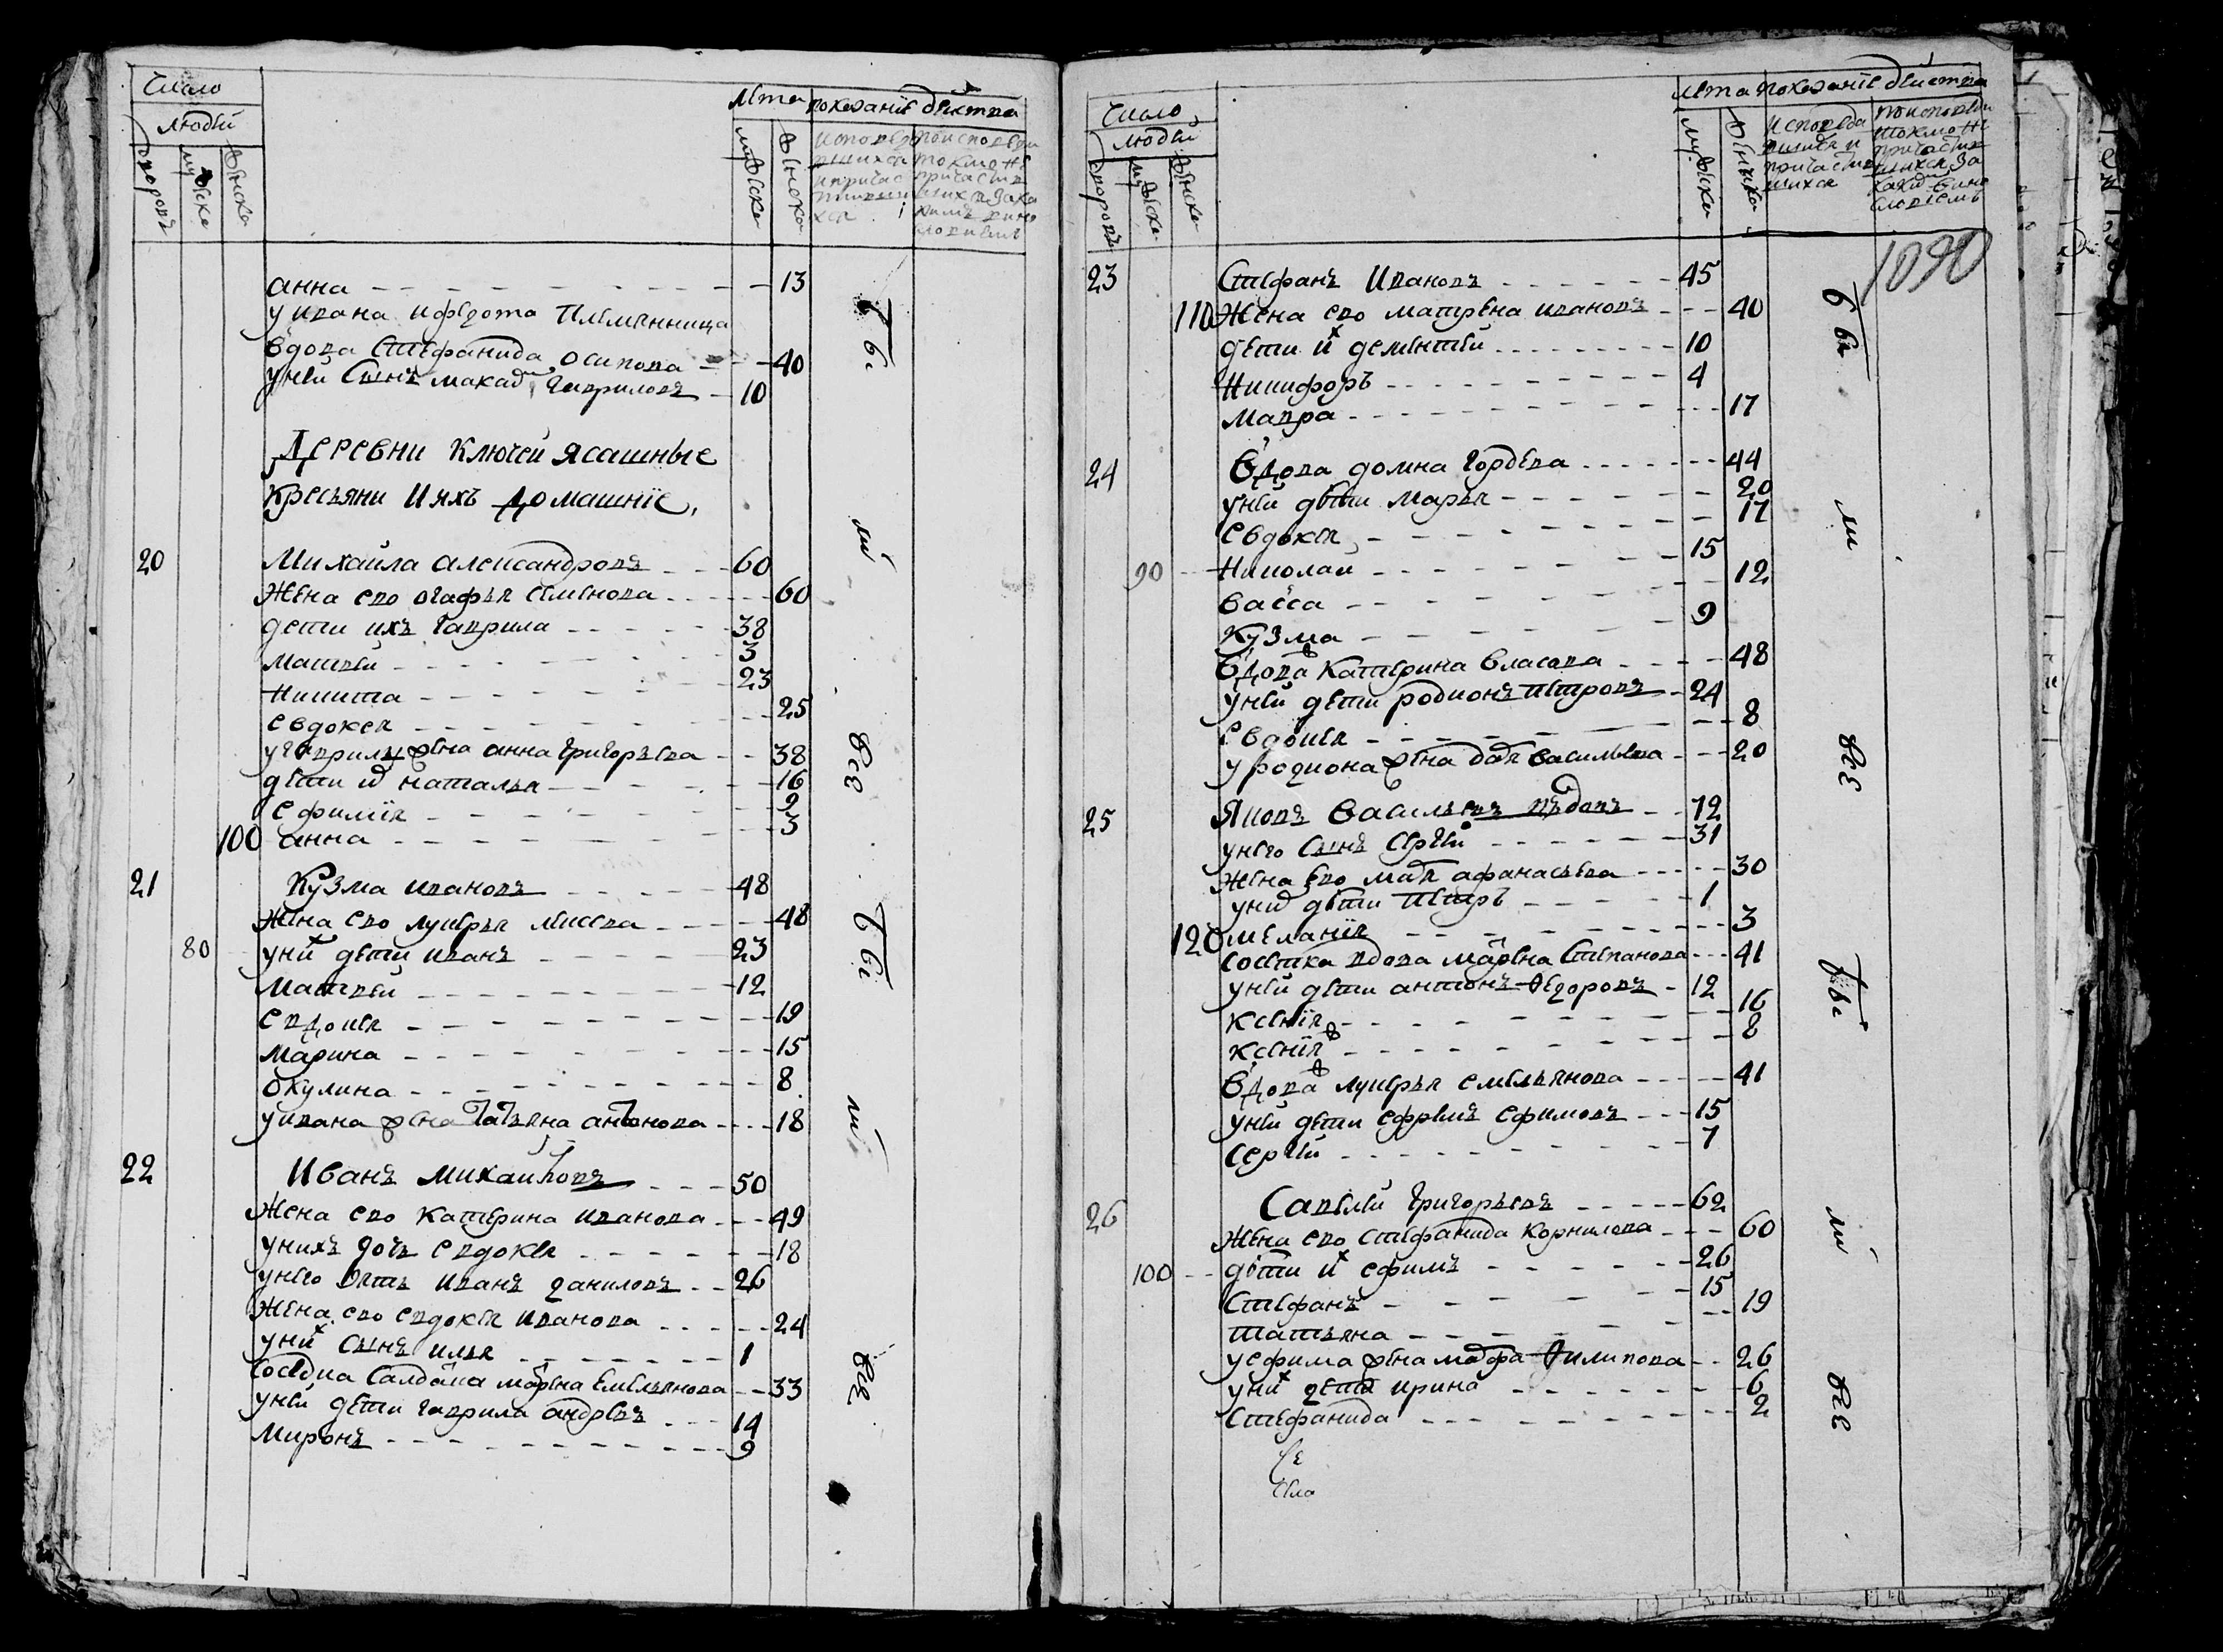 Число
людей
дворовъ
мужеска
женска
лѣта
мужеска
женска
показанiе действа
исповедавшихся и причастившихся
анна 13
у ивана и федота племянница
вдова Стефанида осипова 40
у ней Сынъ гавриловъ 10
Деревни Ключей Ясашные
кресьяни и ихъ домашнiе,
20 Михаила александровъ 60
жена ево огафья семенова 60
дети ихъ гаврила 38
матвей 3
никита 23
евдокея 25
у гаврилы жена анна григорьева 38
дети их наталья 16
ефимiя 9
100 анна 3
21 Кузма ивановъ 48
жена ево лукерья 48
80 у них дети иванъ 23
матвей 12
евдокея 19
марина 15
окулина 8
у ивана жена татьяна антонова 18
22 Иванъ михаиловъ 50
жена ево катерина иванова 49
у нихъ дочь евдокея 18
у него зять иванъ даниловъ 26
жена ево евдокея иванова 24
у них сынъ илья 1
соседка салдатка марена емельянова 33
у ней дети гаврила андреевъ 14
миронъ 9
Число
людей
дворовъ
мужеска
женска
лѣта показанiе действа
мужеска
женска
исповедавшихся и причастившихся
1090
23 Стефанъ Ивановъ 45
110 жена ево матрена иванова 40
дети их дементей 10
никифоръ 4
мавра 17
24 вдова домна гордева 44
у ней дети марья 20
евдокея 17
90 николай 15
васса 12
кузма 9
вдова катерина власова 48
у ней дети родионъ петровъ 24
евдокея 8
у родиона жена васильева 20
25 Яковъ васильевъ вдовъ 72
у него сынъ сергей 31
жена ево афанасьева 30
у них дети петръ 1
120 меланiя 3
соседка вдова марена степанова 41
у ней дети антонъ федоровъ 12
ксенiя 16
ксенiя 8
вдова лукерья емельянова 41
у ней дети ефремъ ефимовъ 15
сергей 7
26 Савелей григорьевъ 62
жена ево стефанида корнилова 60
100 дети их ефимъ 26
стефанъ 15
татьяна 19
у ефима жена марфа филипова 26
у них дети ирина 6
стефанида 2